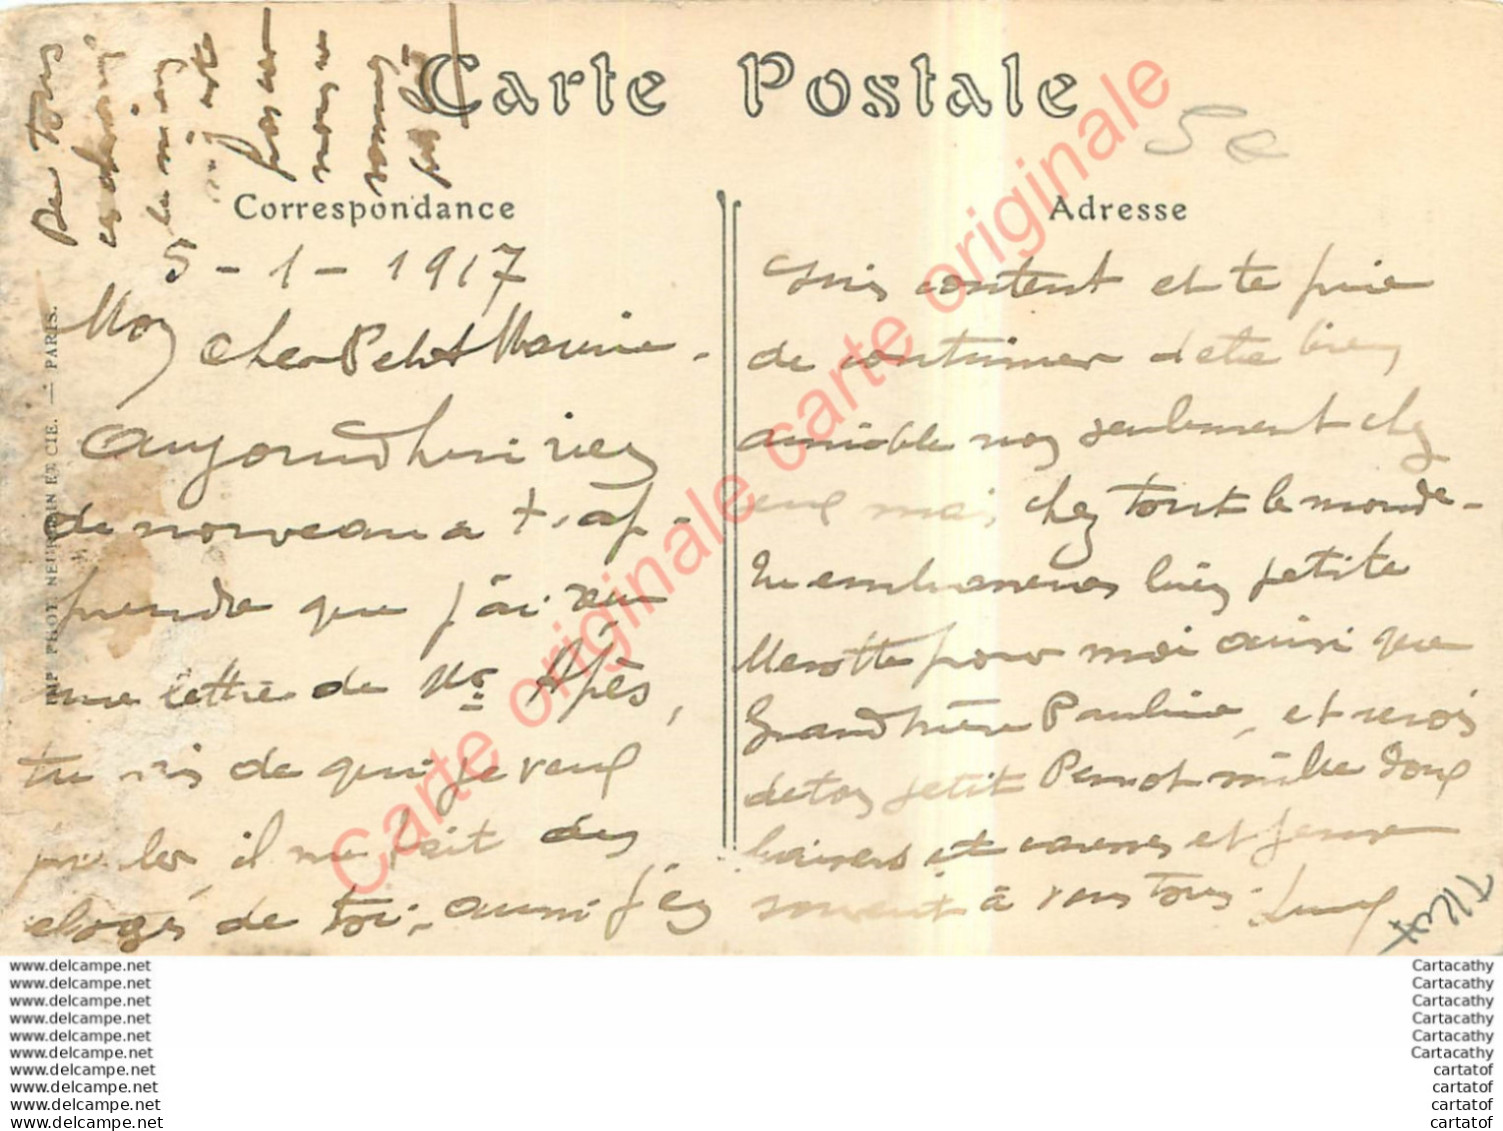 Carte Postale
Correspondance
Adresse
5 - 1 - 1917
Mon
cher Petit Maurice -
aujourd'hui rien
de nouveau a t'ap-
prendre que j'ai reçu
une lettre de Mr Apès,
tu vis de qui je veux
parler, il me fait des
eloges de toi, aussi j'en
suis content et te prie
de continuer d'etre bien
aimable non seulement chez
eux mais chez tout le monde -
Tu embrasseras bien petite
Marotte pour moi ainsi que
Grand'mère Pauline, et reçois
de ton petit Parrot mille doux
baisers et caresses et pense
souvent à vous tous.
De tous
pas
IMP PHOT. NEURDEIN ET CIE. — PARIS.
5€
Carte originale carte originale carte originale
www.delcampe.net
www.delcampe.net
www.delcampe.net
www.delcampe.net
www.delcampe.net
www.delcampe.net
www.delcampe.net
www.delcampe.net
www.delcampe.net
www.delcampe.net
Cartacathy
Cartacathy
Cartacathy
Cartacathy
Cartacathy
Cartacathy
cartatof
cartatof
cartatof
cartatof